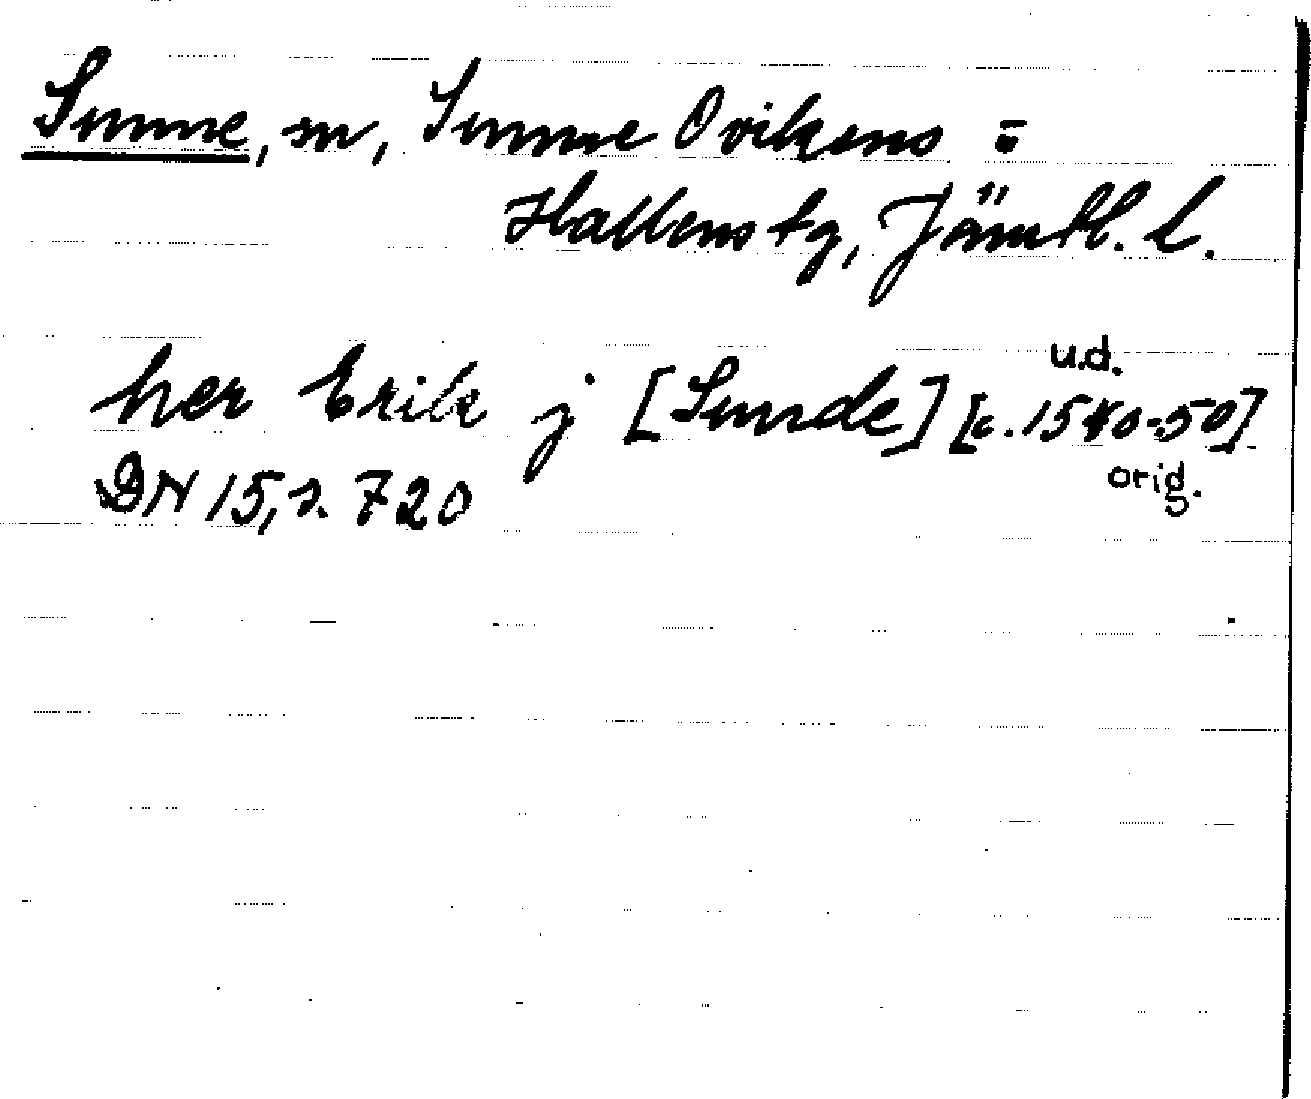 Sunne, sn, Sunne Ovikens =
Hallens tg, Jämtl. l.
u.d.
her Erik j [Sunde] [c. 1540-50]
orig.
DN 15, s. 720